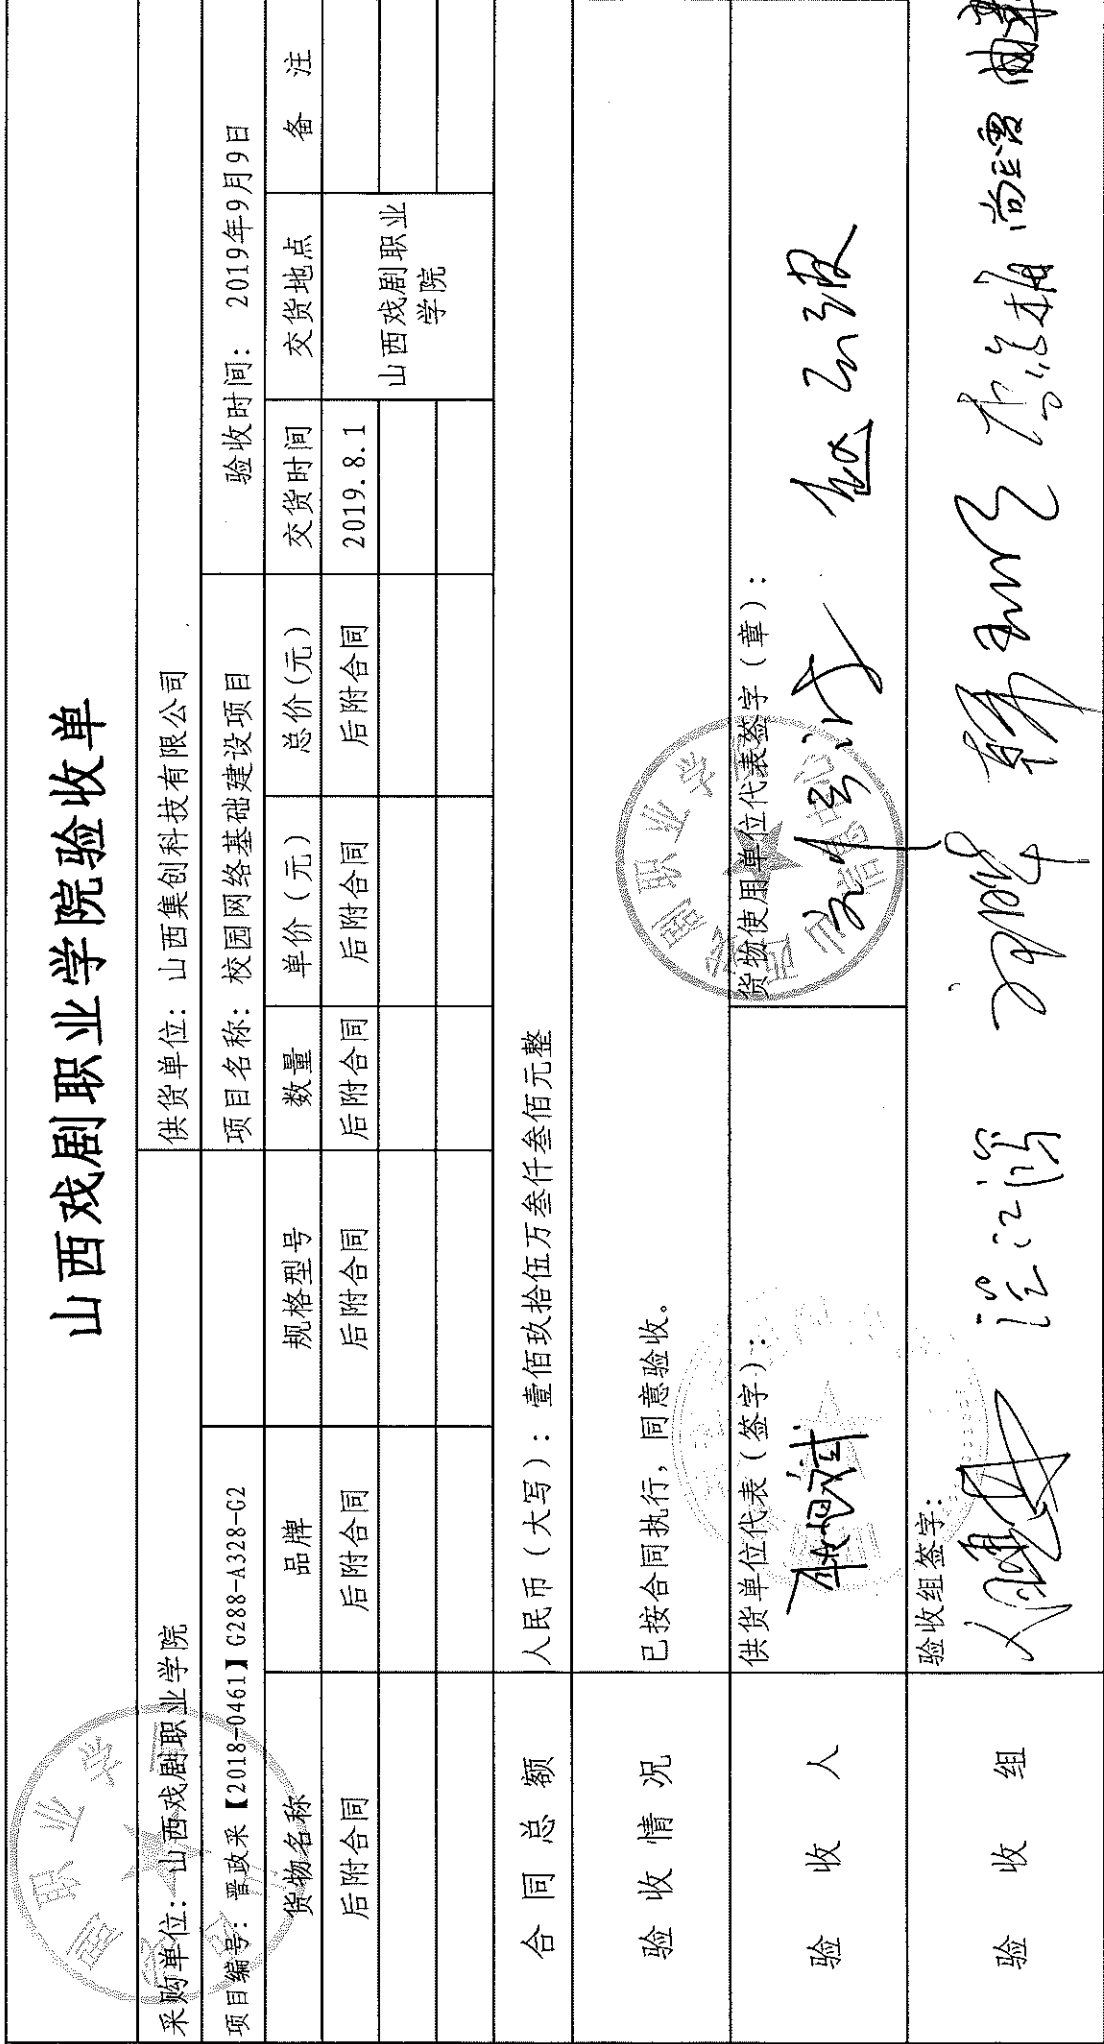 山西戏剧职业学院验收单
采购单位：山西戏剧职业学院 供货单位：山西集创科技有限公司
项目编号：晋政采【2018-0461】G288-A328-G2 项目名称：校园网络基础建设项目 验收时间： 2019年9月9日
货物名称 品牌 规格型号 数量 单价(元) 总价(元) 交货时间 交货地点 备 注
后附合同 后附合同 后附合同 后附合同 后附合同 后附合同 2019.8.1
山西戏剧职业
学院
合同总额 人民币（大写）：壹佰玖拾伍万叁仟叁佰元整
验收情况 已按合同执行，同意验收。
验收人 供货单位代表（签字）： 货物使用单位代表签字（章）：
验收组 验收组签字：